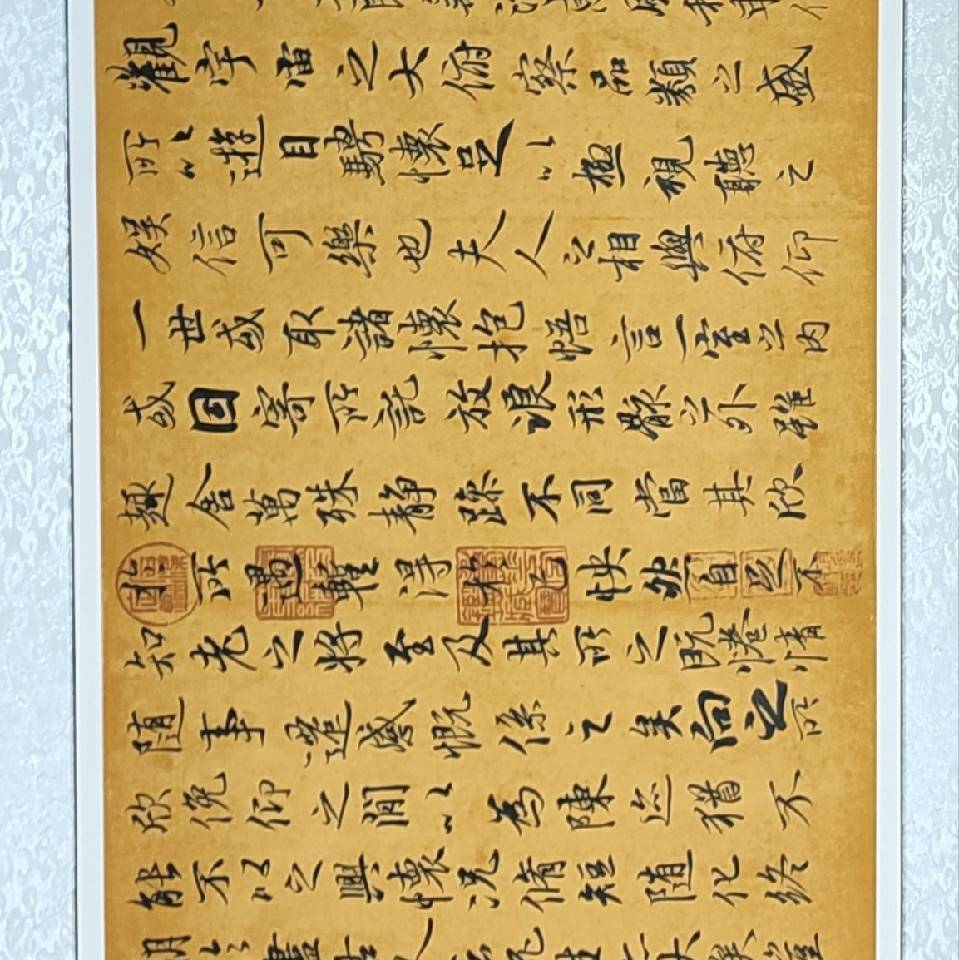 觀宇宙之大俯察品類之盛
所以遊目騁懷足以極視聽之
娛信可樂也夫人之相與俯仰
一世或取諸懷抱悟言一室之內
或因寄所託放浪形骸之外雖
趣舍萬殊靜躁不同當其欣
於所遇輒得於己怏然自足不
知老之將至及其所之既惓情
隨事遷感慨係之矣向之所
欣俛仰之閒以為陳迹猶不
能不以之興懷況脩短隨化終